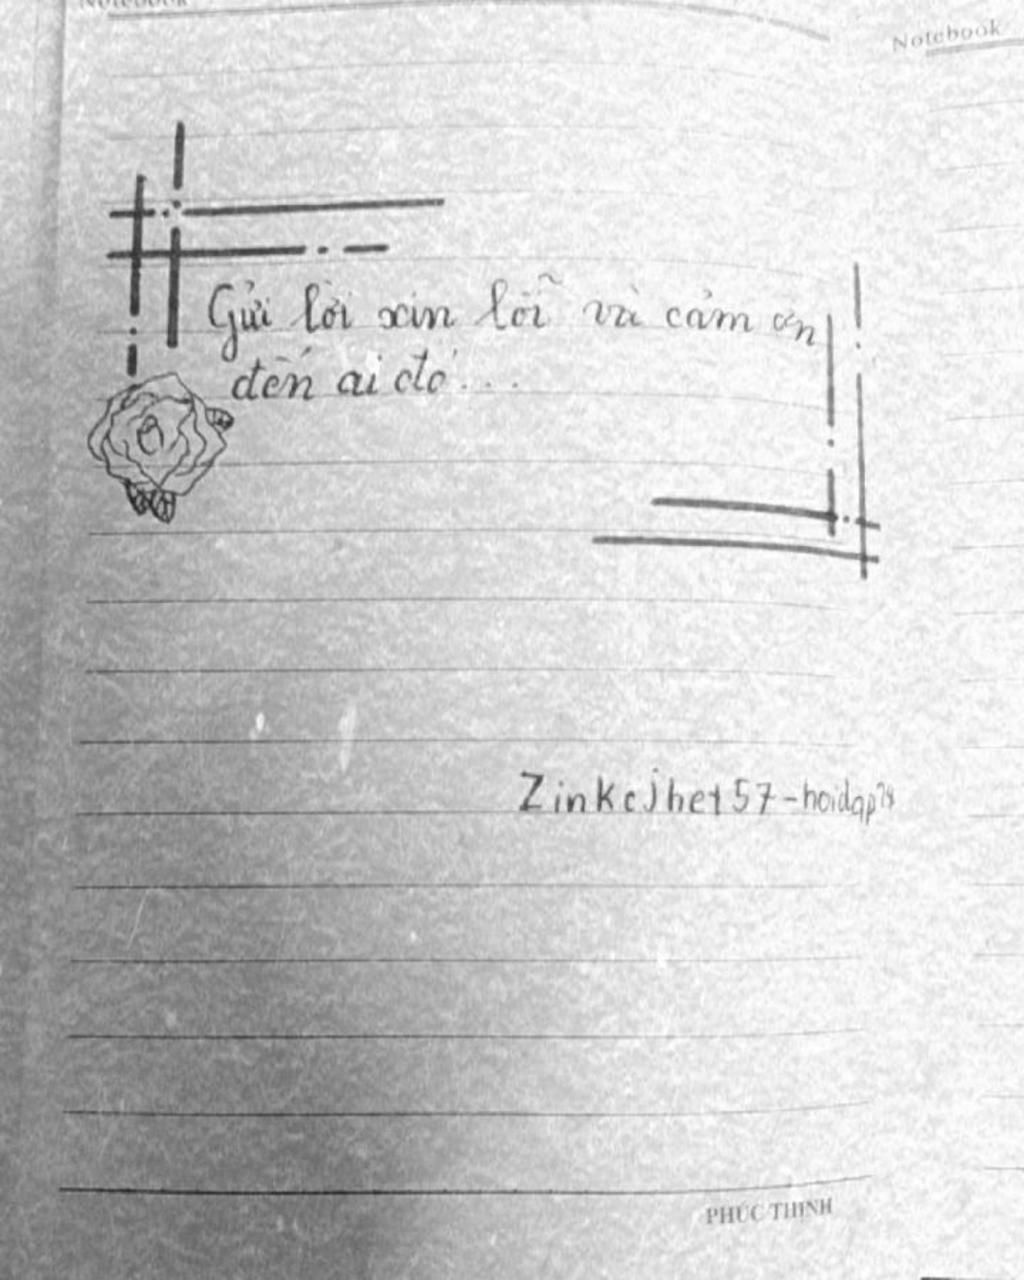 Notebook
Notebook
Gửi lời xin lỗi và cảm ơn
đến ai đó...
Zinkcjhet57-hoidap
PHÚC THỊNH